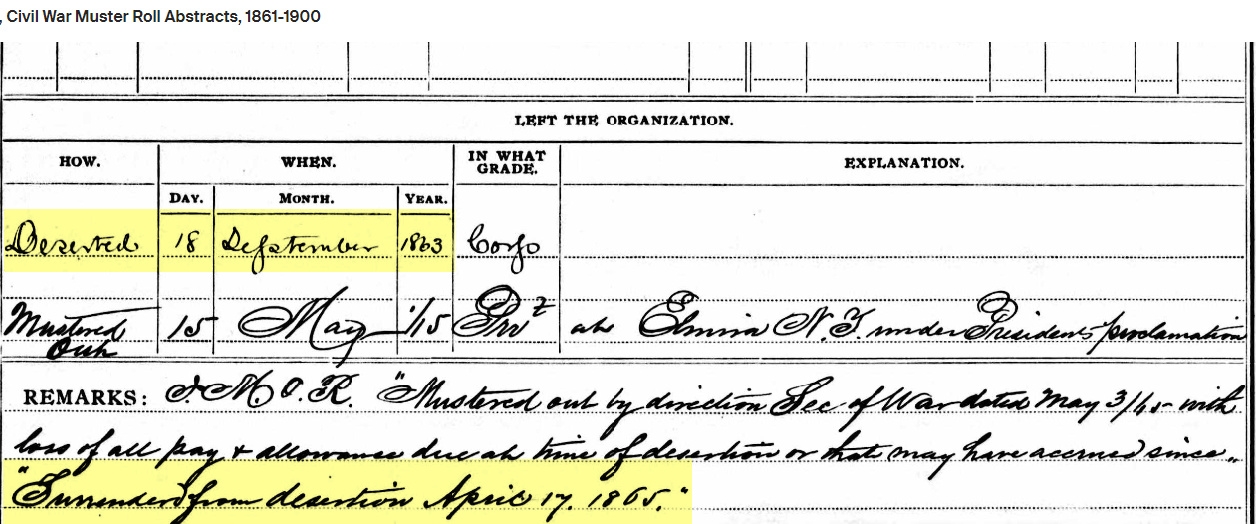 , Civil War Muster Roll Abstracts, 1861-1900
LEFT THE ORGANIZATION.
HOW. WHEN. IN WHAT GRADE. EXPLANATION.
DAY. MONTH. YEAR.
Deserted 18 September 1863 Corp
Mustered Out 15 May /65 Pvt at Elmira N.Y. under Presidents proclamation
REMARKS: M.O.R. "Mustered out by direction Sec of War dated May 3/65 with
loss of all pay & allowance due at time of desertion or that may have accrued since"
"Surrendered from desertion April 17. 1865."